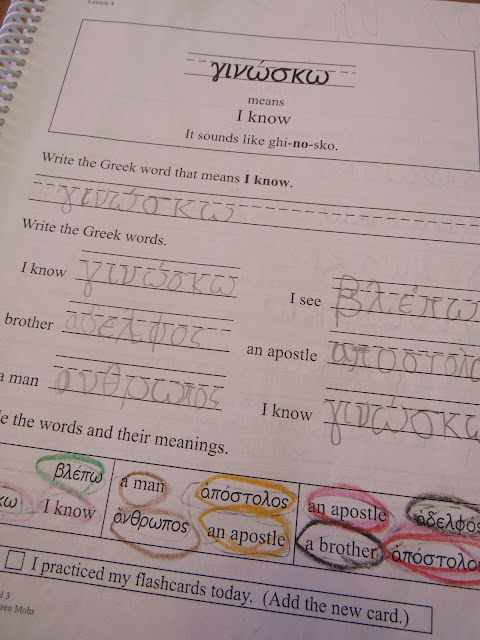 Lesson 4
γινώσκω
means
I know
It sounds like ghi-no-sko.
Write the Greek word that means I know.
γινώσκω
Write the Greek words.
I know γινώσκω I see βλέπω
brother αδελφος an apostle αποστολο
a man ανθρωπος I know γινώσκω
le the words and their meanings.
βλέπω a man ἀπόστολος an apostle ἀδελφός
κω I know ἄνθρωπος an apostle a brother ἀπόστολος
I practiced my flashcards today. (Add the new card.)
l 3
ren Mohs